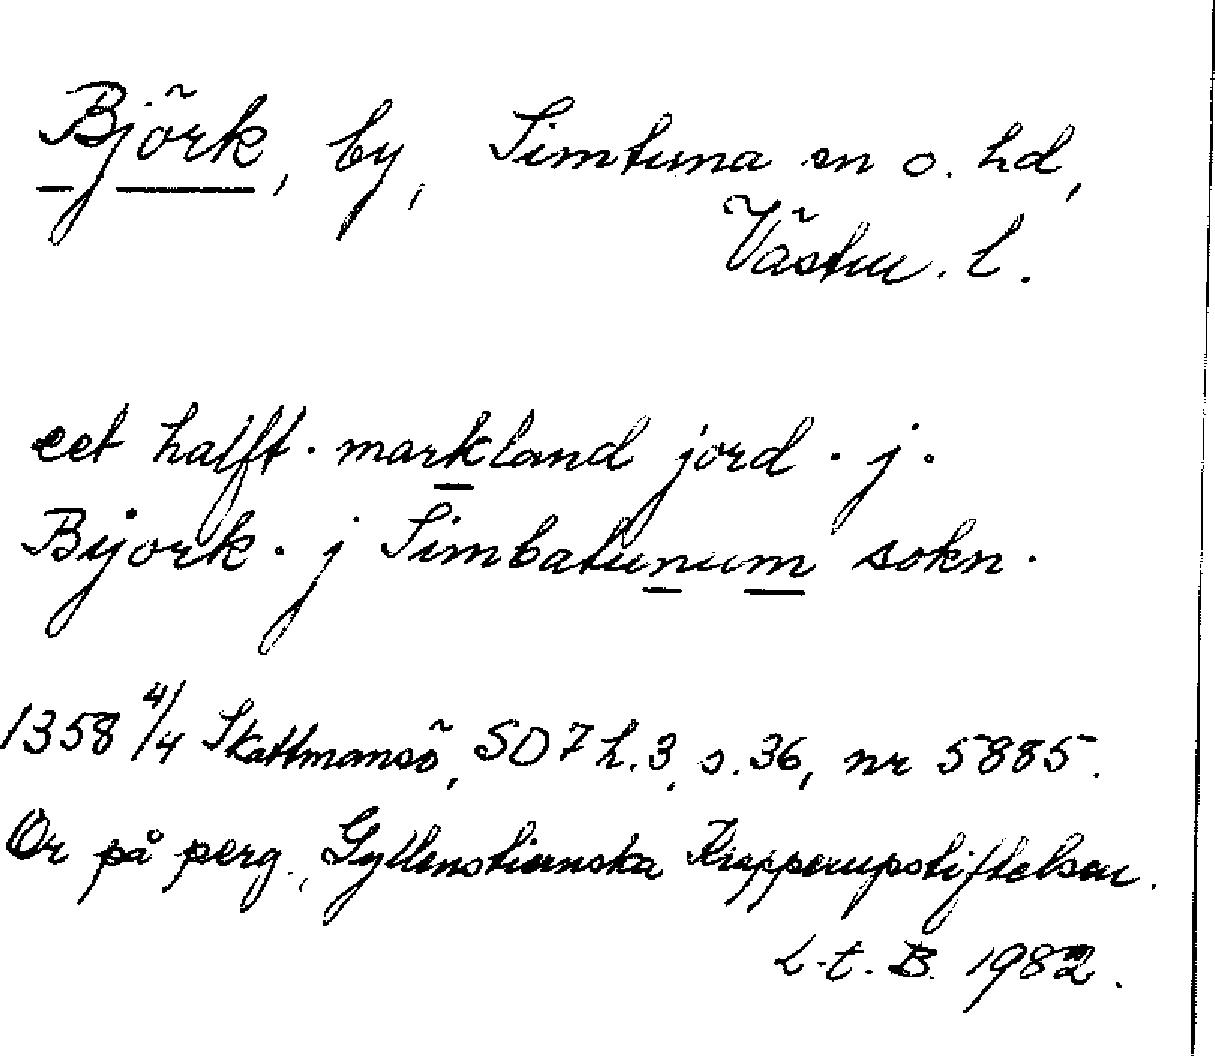 Björk, by, Simtuna sn o. hd,
Västm. l.
eet halfft · markland jord · j ·
Bijork · j Simbatunum sokn ·
1358 4/4 Skattmansö, SD 7 h. 3, s. 36, nr 5885.
Or på perg., Gyllenstiernska Krapperupstiftelsen.
L-t. B. 1982.